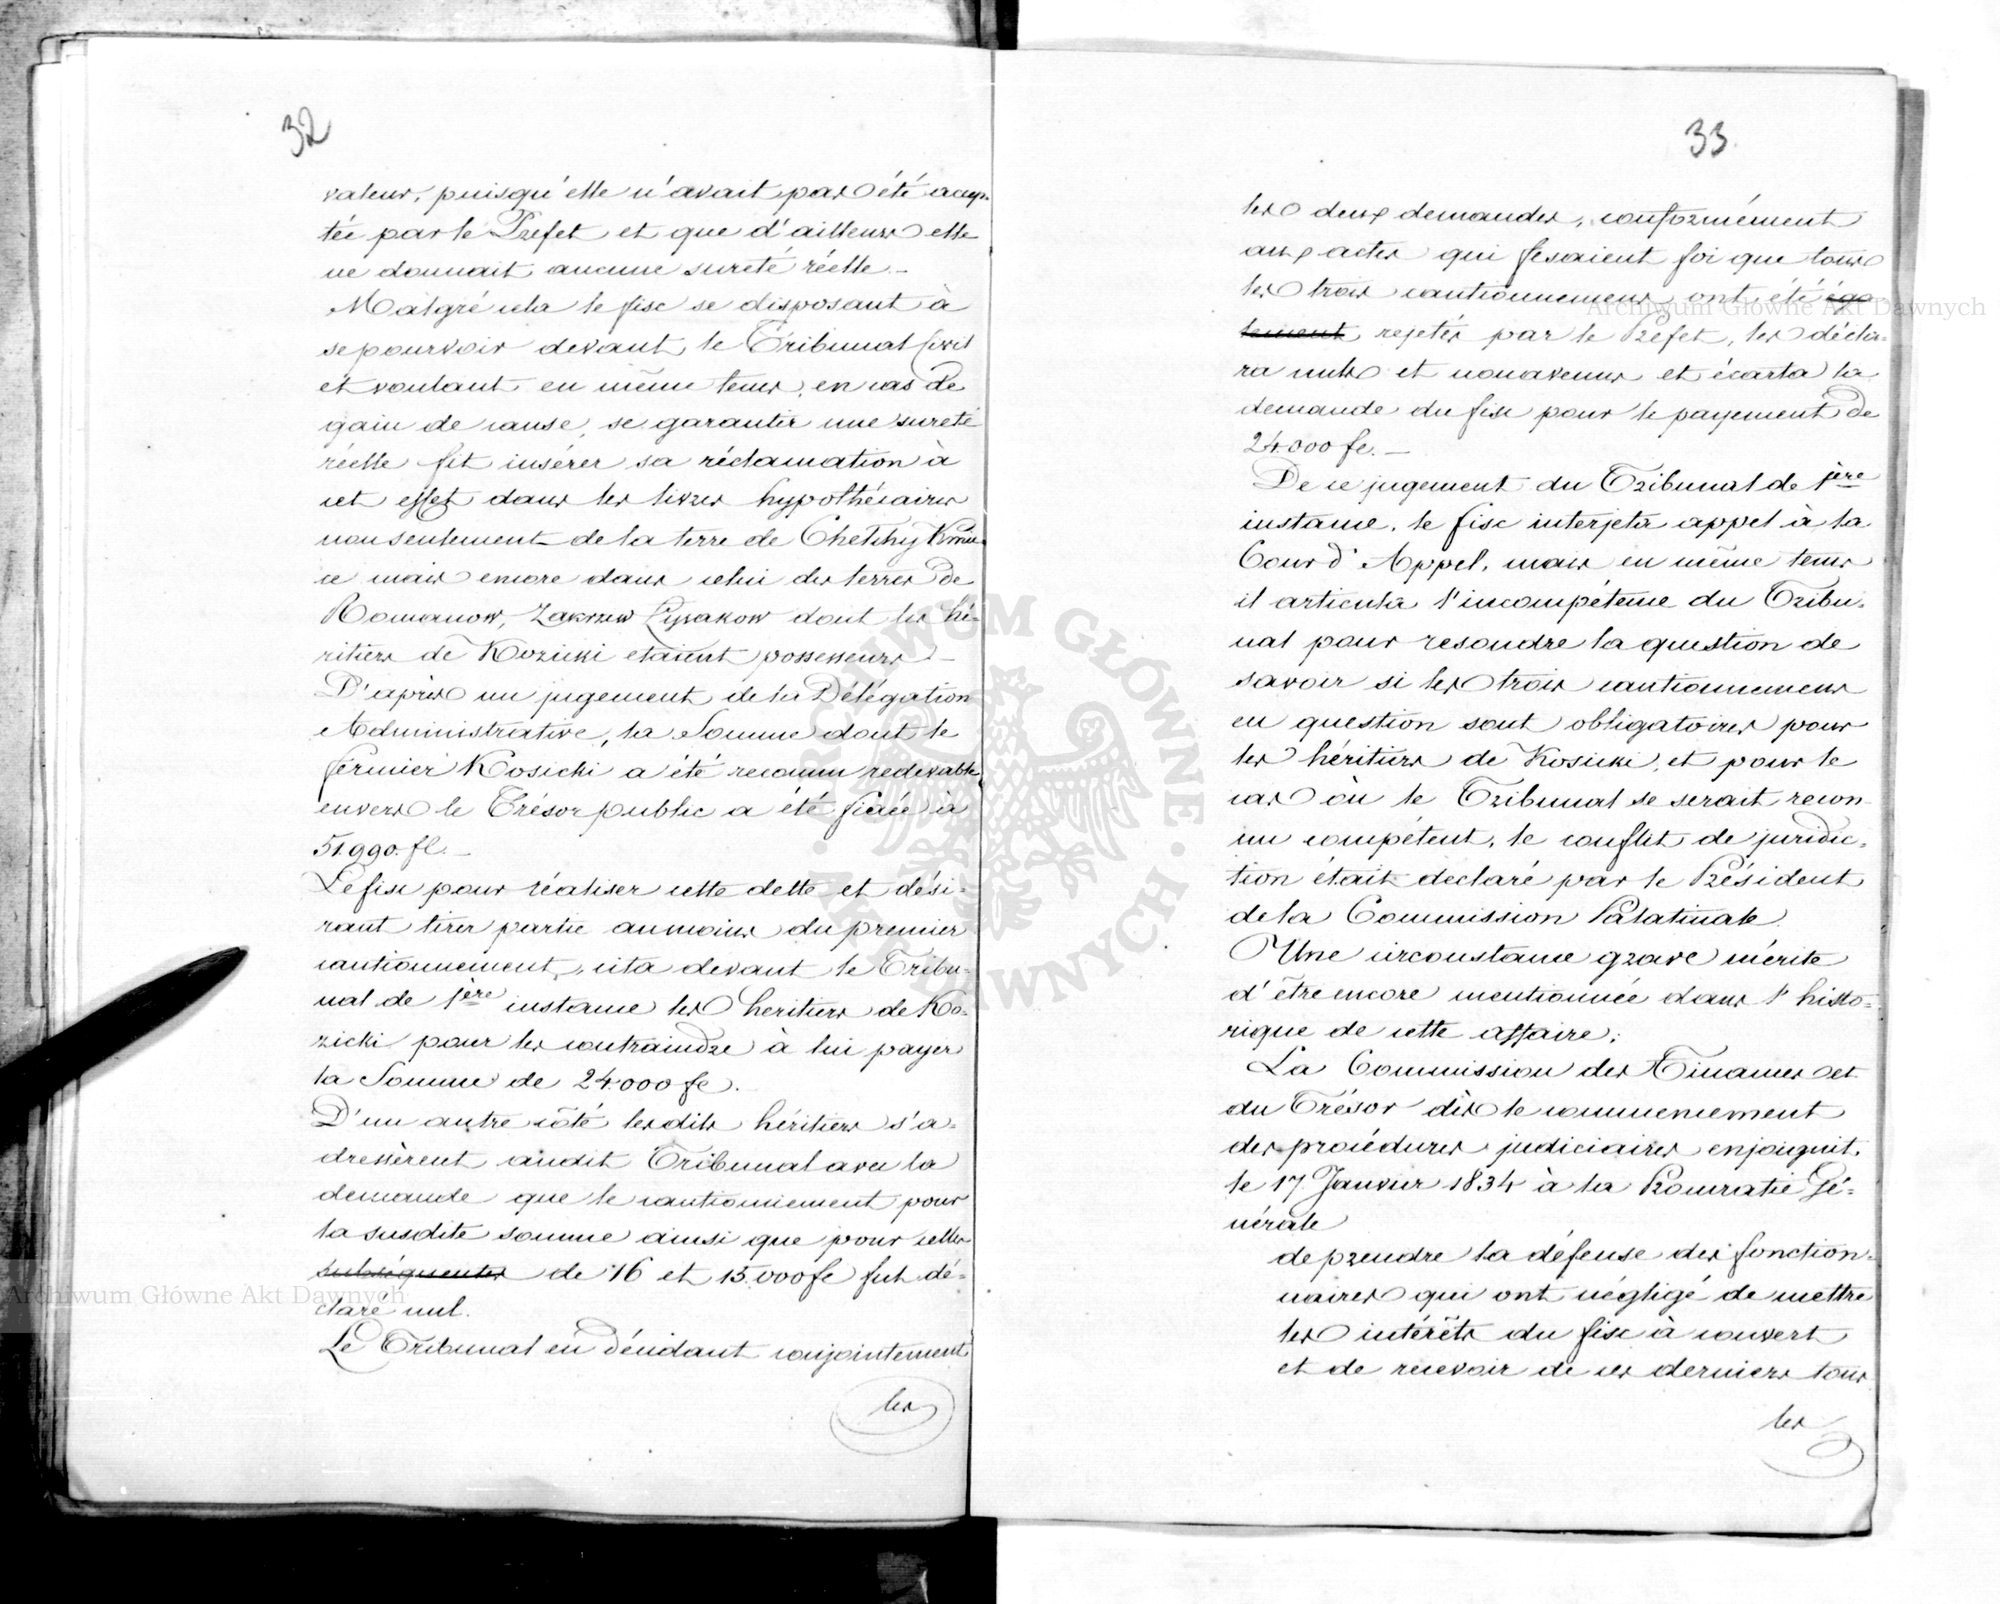 32
valeur, puisqu'elle n'avait pas été accep-
tée par le Préfet et que d'ailleurs elle
ne donnait aucune sureté réelle.—
Malgré cela le fisc se disposant à
se pourvoir devant le Tribunal Civil
et voulant en même tems, en cas de
gain de cause, se garantir une sureté
réelle fit insérer sa réclamation à
cet effet dans les livres hypothécaires
non seulement de la terre de
ce mais encore dans celui des terres de
Romanow, Zakrzew Łysakow dont les hé-
ritiers de Kozicki etaient possesseurs.—
D'après un jugement de la Délégation
Administrative, la Somme dont le
fermier Kosicki a été reconnu redevable
envers le Trésor public a été fixée à
51.990. fl.—
Le fisc pour réaliser cette dette et dési-
rant tirer partie aumoins du premier
cautionnement, cita devant le Tribu-
nal de 1ère instance les heritiers de Ko-
zicki pour les contraindre à lui payer
la Somme de 24.000 fl.
D'un autre côté lesdits héritiers s'a-
dressèrent audit Tribunal avec la
demande que le cautionnement pour
la susdite somme ainsi que pour celles
subséquentes de 16 et 15.000 fl fut dé-
claré nul.
Le Tribunal en décidant conjointement
les
33.
les deux demandes, conformément
aux actes qui fesaient foi que tous
les trois cautionnemens ont été éga-
lement rejetés par le Préfet, les décla-
ra nuls et nonavenus et écarta la
demande du fisc pour le payement de
24.000 fl.—
De ce jugement du Tribunal de 1ère
instance, le fisc interjeta appel à la
Cour d'Appel, mais en même tems
il articula l'incompétence du Tribu-
nal pour resoudre la question de
savoir si les trois cautionnemens
en question sont obligatoires pour
les héritiers de Kosicki, et pour le
cas où le Tribunal se serait recon-
nu compétent, le conflit de juridic-
tion était déclaré par le Président
de la Commission Palatinale.
Une circonstance grave mérite
d'être encore mentionnée dans l'histo-
rique de cette affaire;
La Commission des Finances et
du Trésor dès le commencement
des procédures judiciaires enjoignit
le 17 Janvier 1834 à la Procuratie Gé-
nérale
de prendre la défense des fonction-
naires qui ont négligé de mettre
les intérêts du fisc à couvert
et de recevoir de ces derniers tous
les
Archiwum Główne Akt Dawnych
Archiwum Główne Akt Dawnych
ARCHIWUM GŁÓWNE AKT DAWNYCH